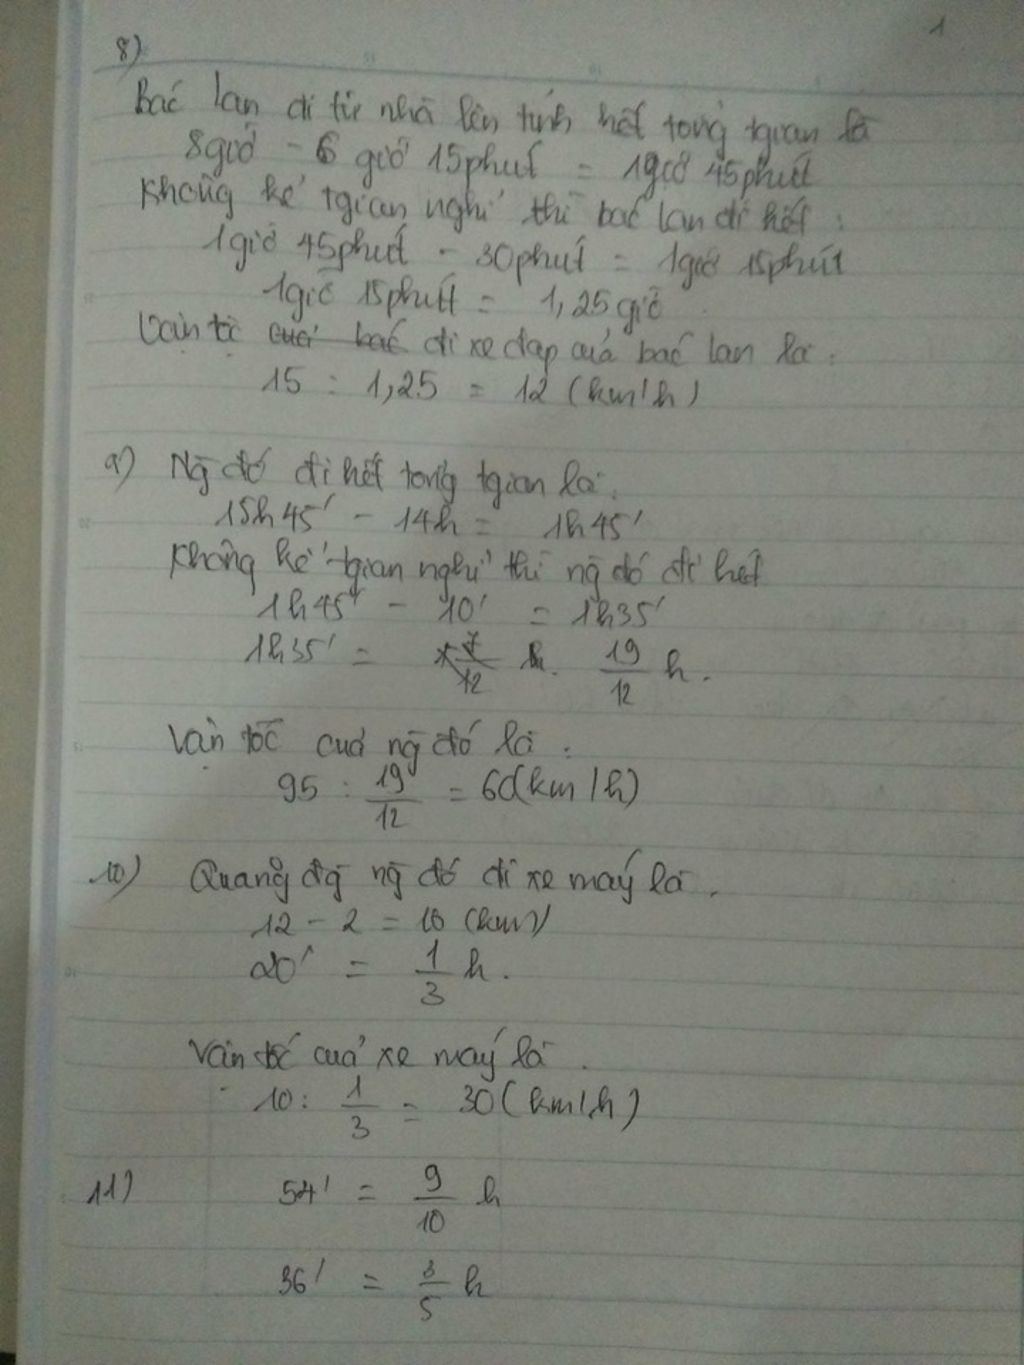 1
8)
Bác lan đi từ nhà lên tỉnh hết tổng tgian là
8giờ - 6 giờ 15phút = 1giờ 45phút
Không kể tgian nghỉ thì bác lan đi hết :
1giờ 45phút - 30phút = 1giờ 15phút
1giờ 15phút = 1,25giờ
Vận tố của bác đi xe đạp của bác lan là :
15 : 1,25 = 12 (km/h)
9) Ng đó đi hết tổng tgian là :
15h45' - 14h = 1h45'
Không kể tgian nghỉ thì ng đó đi hết
1h45' - 10' = 1h35'
1h35' = 1 7/12 h. 19/12 h.
Vận tốc của ng đó là :
95 : 19/12 = 60(km/h)
10) Quãng đg ng đó đi xe máy là .
12 - 2 = 10 (km)
20' = 1/3 h.
Vận tốc của xe máy là .
10 : 1/3 = 30(km/h)
11) 54' = 9/10 h
36' = 3/5 h